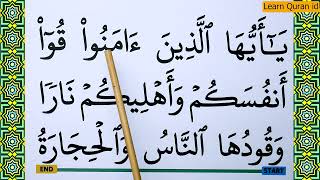 Learn Quran id
يَـٰٓأَيُّهَا ٱلَّذِينَ ءَامَنُوا۟ قُوٓا۟
أَنفُسَكُمْ وَأَهْلِيكُمْ نَارًا
وَقُودُهَا ٱلنَّاسُ وَٱلْحِجَارَةُ
END START